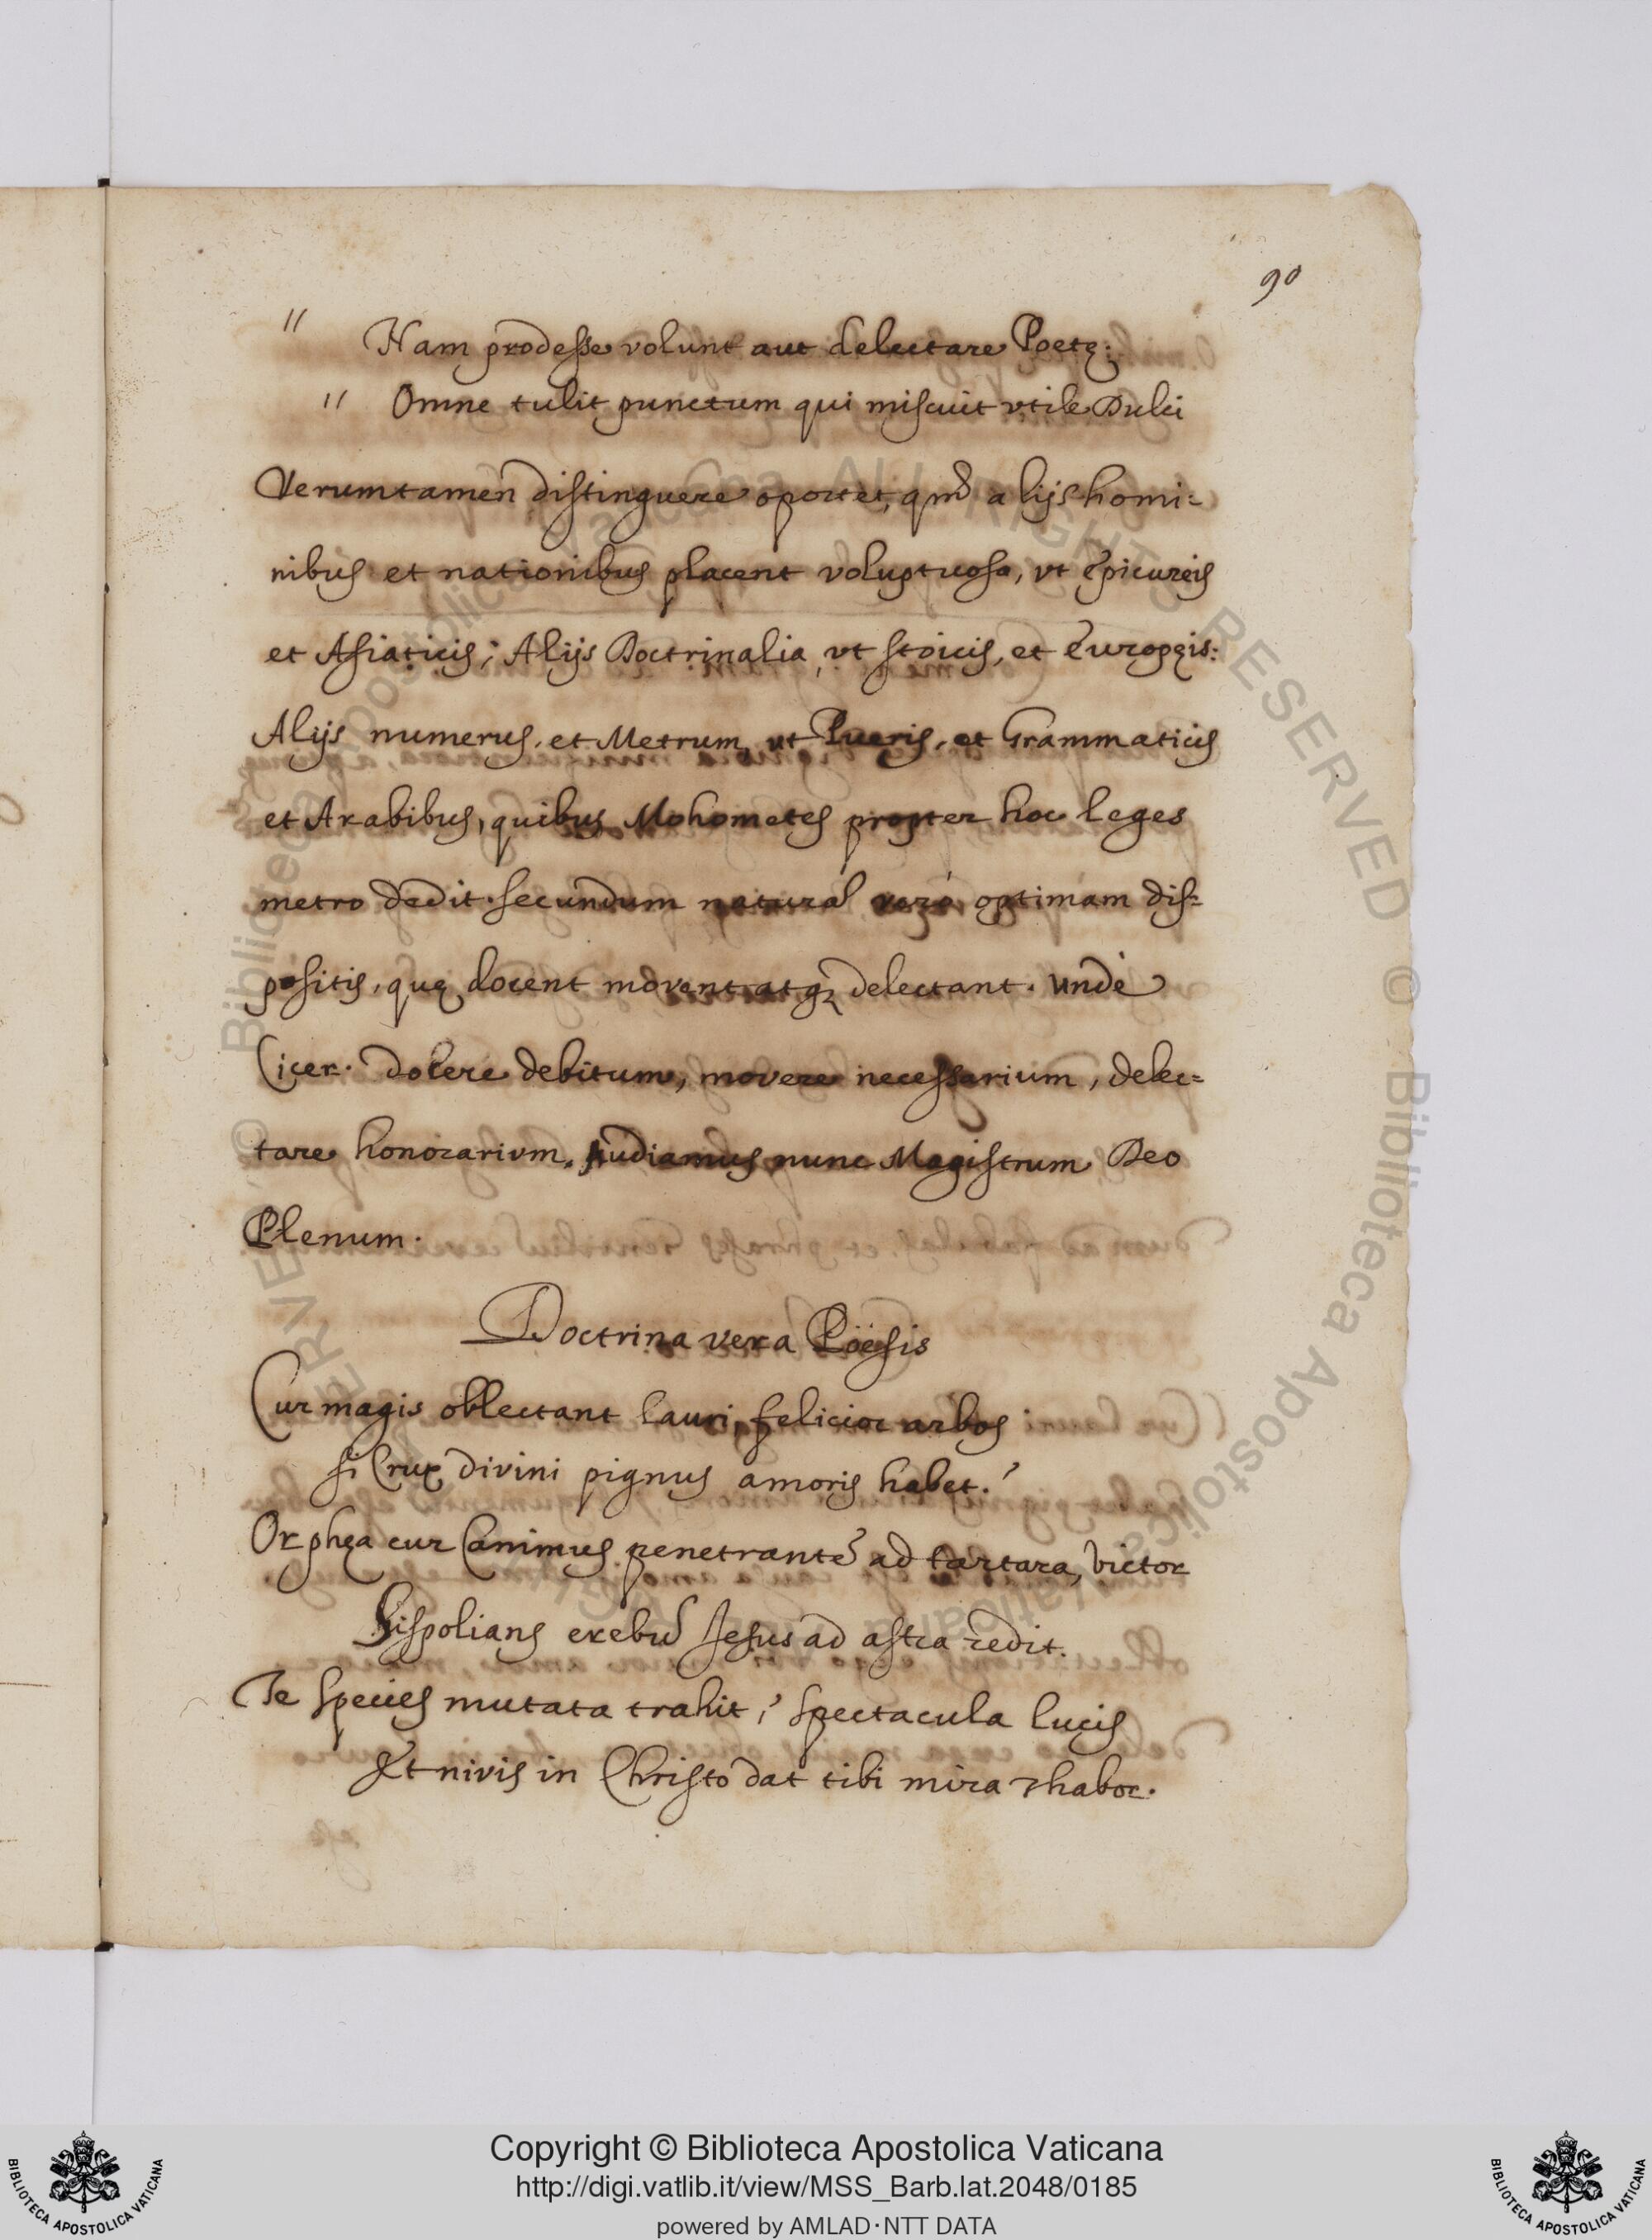 90
" Nam prodesse volunt aut delectare Poetę:
" Omne tulit punctum qui miscuit vtile Dulci
Verumtamen distinguere oportet, qm̃ alijs homi=
nibus et nationibus placent voluptuosa, vt Epicureis
et Asiaticis; Alijs Doctrinalia, vt stoicis, et Europęis:
Alijs numerus, et Metrum ut Pueris, et Grammaticis
et Arabibus, quibus Mohometes propter hoc leges
metro dedit. secundum naturã verò optimam dis=
positis, quę docent movent atq; delectant. Vndè
Cicer. docere debitum, movere necessarium, delec=
tare honorarivm. Audiamus nunc Magistrum Deo
Plenum.
Doctrina vera Pöesis
Cur magis oblectant lauri, felicior arbos
si Crux divini pignus amoris habet?
Orphęa cur Canimus penetrantẽ ad tartara, victor
Si spolians erebũ Jesus ad astra redit.
Te species mutata trahit? spectacula lucis
Et nivis in Christo dat tibi mira Thabor.
© Biblioteca Apostolica Vaticana ALL RIGHTS RESERVED © Biblioteca Apostolica Vaticana
Copyright © Biblioteca Apostolica Vaticana
http://digi.vatlib.it/view/MSS_Barb.lat.2048/0185
powered by AMLAD·NTT DATA
BIBLIOTECA APOSTOLICA VATICANA
BIBLIOTECA APOSTOLICA VATICANA